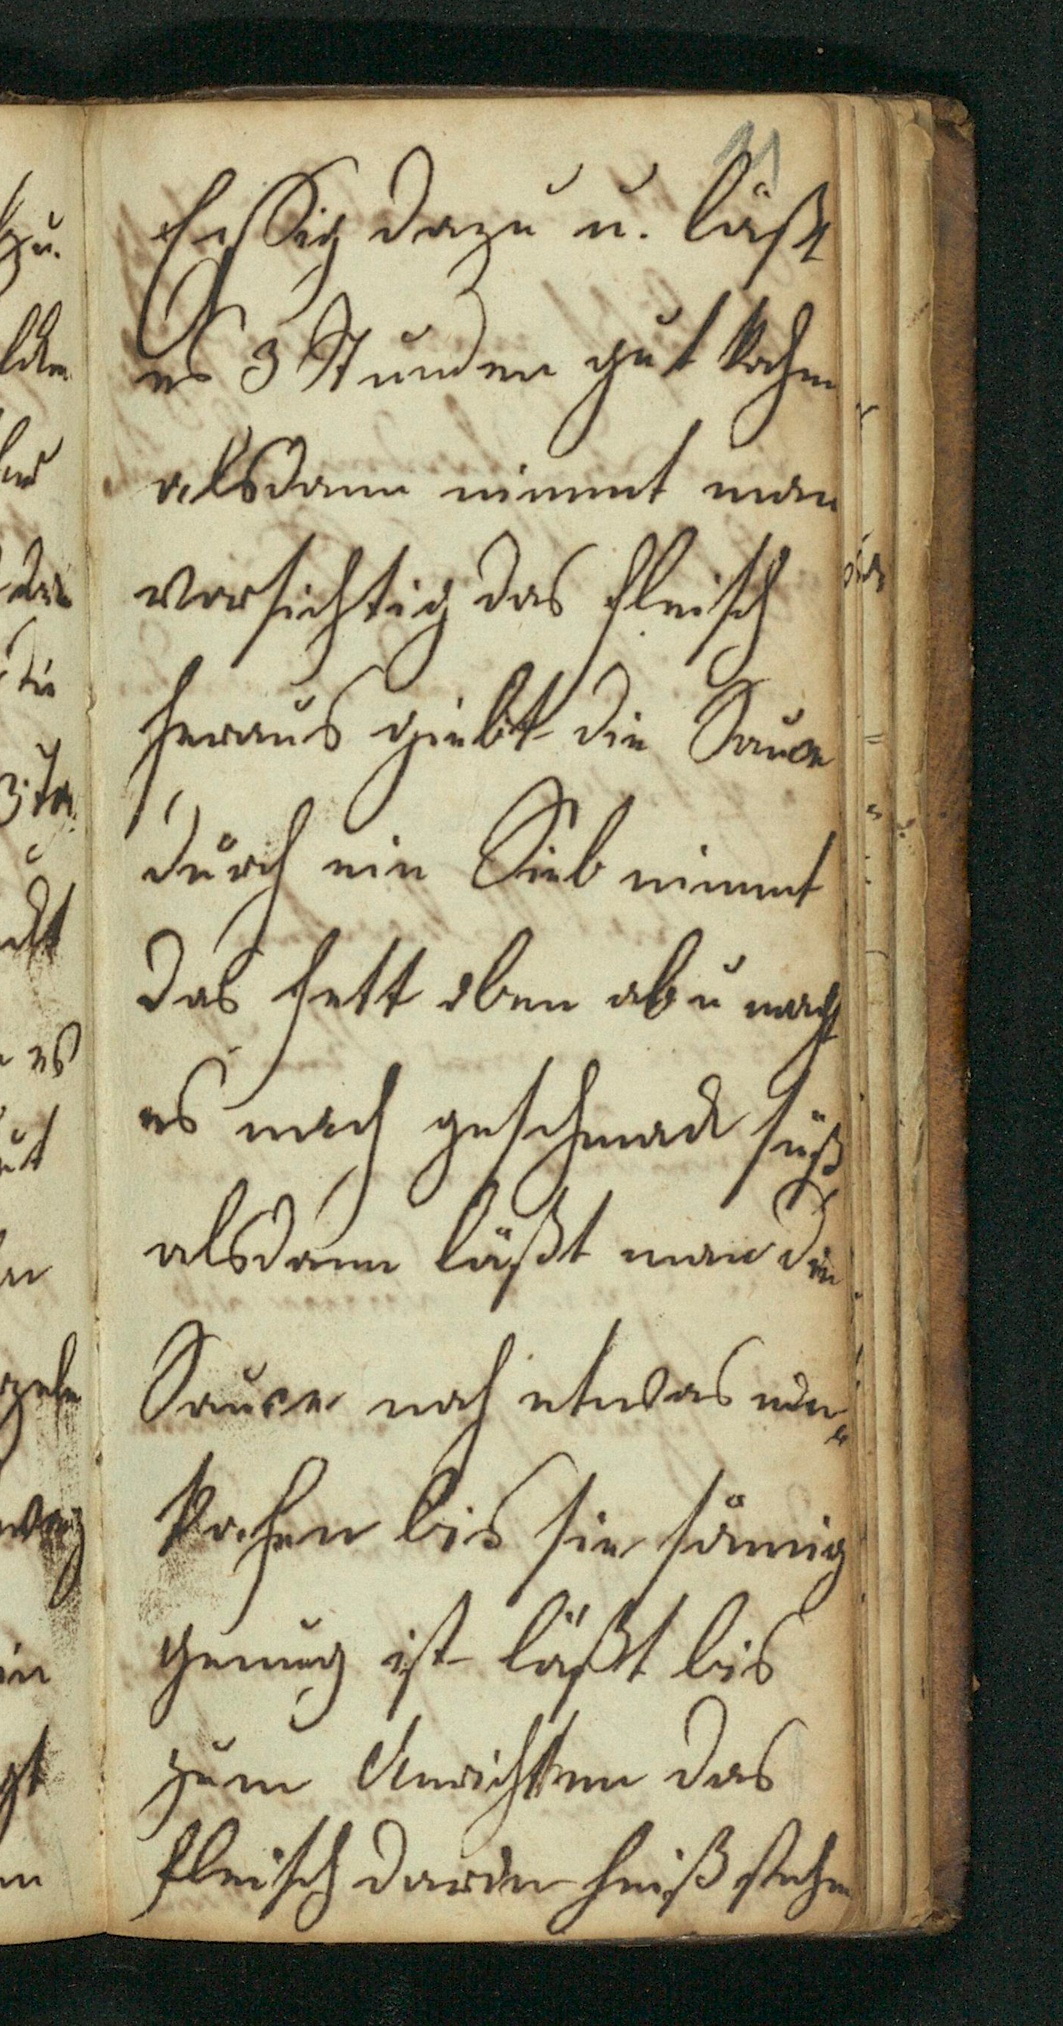 11
Essig dazu u. läßt
es 3 Stunden gut kochen
alsdann nimmt man
vorsichtig das Fleisch
heraus giebt die Sauce
durch ein Sieb nimmt
das Fett oben ab u macht
es nach geschmack süß
alsdann läßt man die
Sauce noch etwas
kochen bis sie sämig
genug ist läßt bis
zum Anrichten das
Fleisch darin heiß stehen